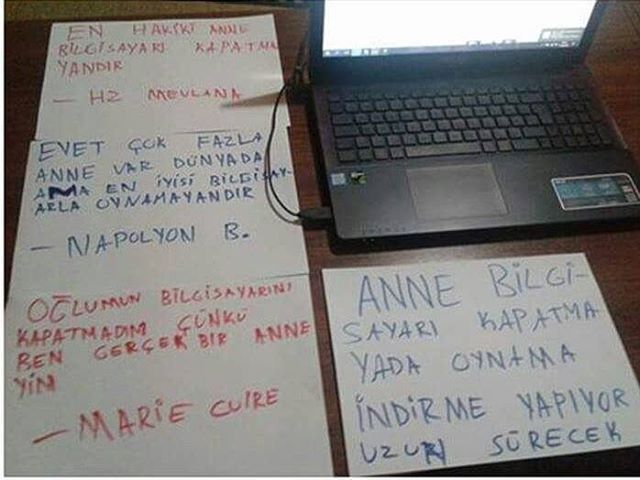 EN HAKİKİ ANNE
BİLGİSAYARI KAPATMA
YANDIR
— HZ MEVLANA
EVET ÇOK FAZLA
ANNE VAR DÜNYADA
AMA EN İYİSİ BİLGİSAY-
ARLA OYNAMAYANDIR
— NAPOLYON B.
OĞLUMUN BİLGİSAYARINI
KAPATMADIM ÇÜNKÜ
BEN GERÇEK BİR ANNE
YİM
— MARIE CUIRE
ANNE BİLGİ-
SAYARI KAPATMA
YADA OYNAMA
İNDİRME YAPIYOR
UZUN SÜRECEK